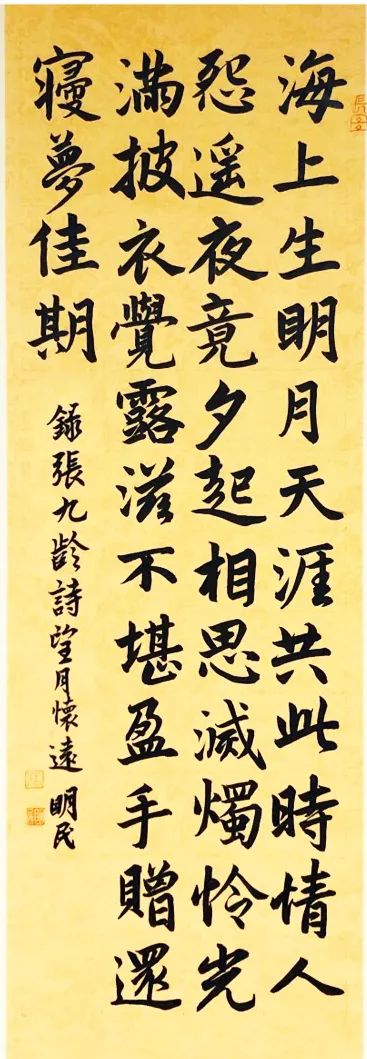 海上生明月天涯共此時情人
怨遥夜竟夕起相思滅燭怜光
滿披衣覺露滋不堪盈手贈還
寢夢佳期
録張九齡詩望月懷遠 明民